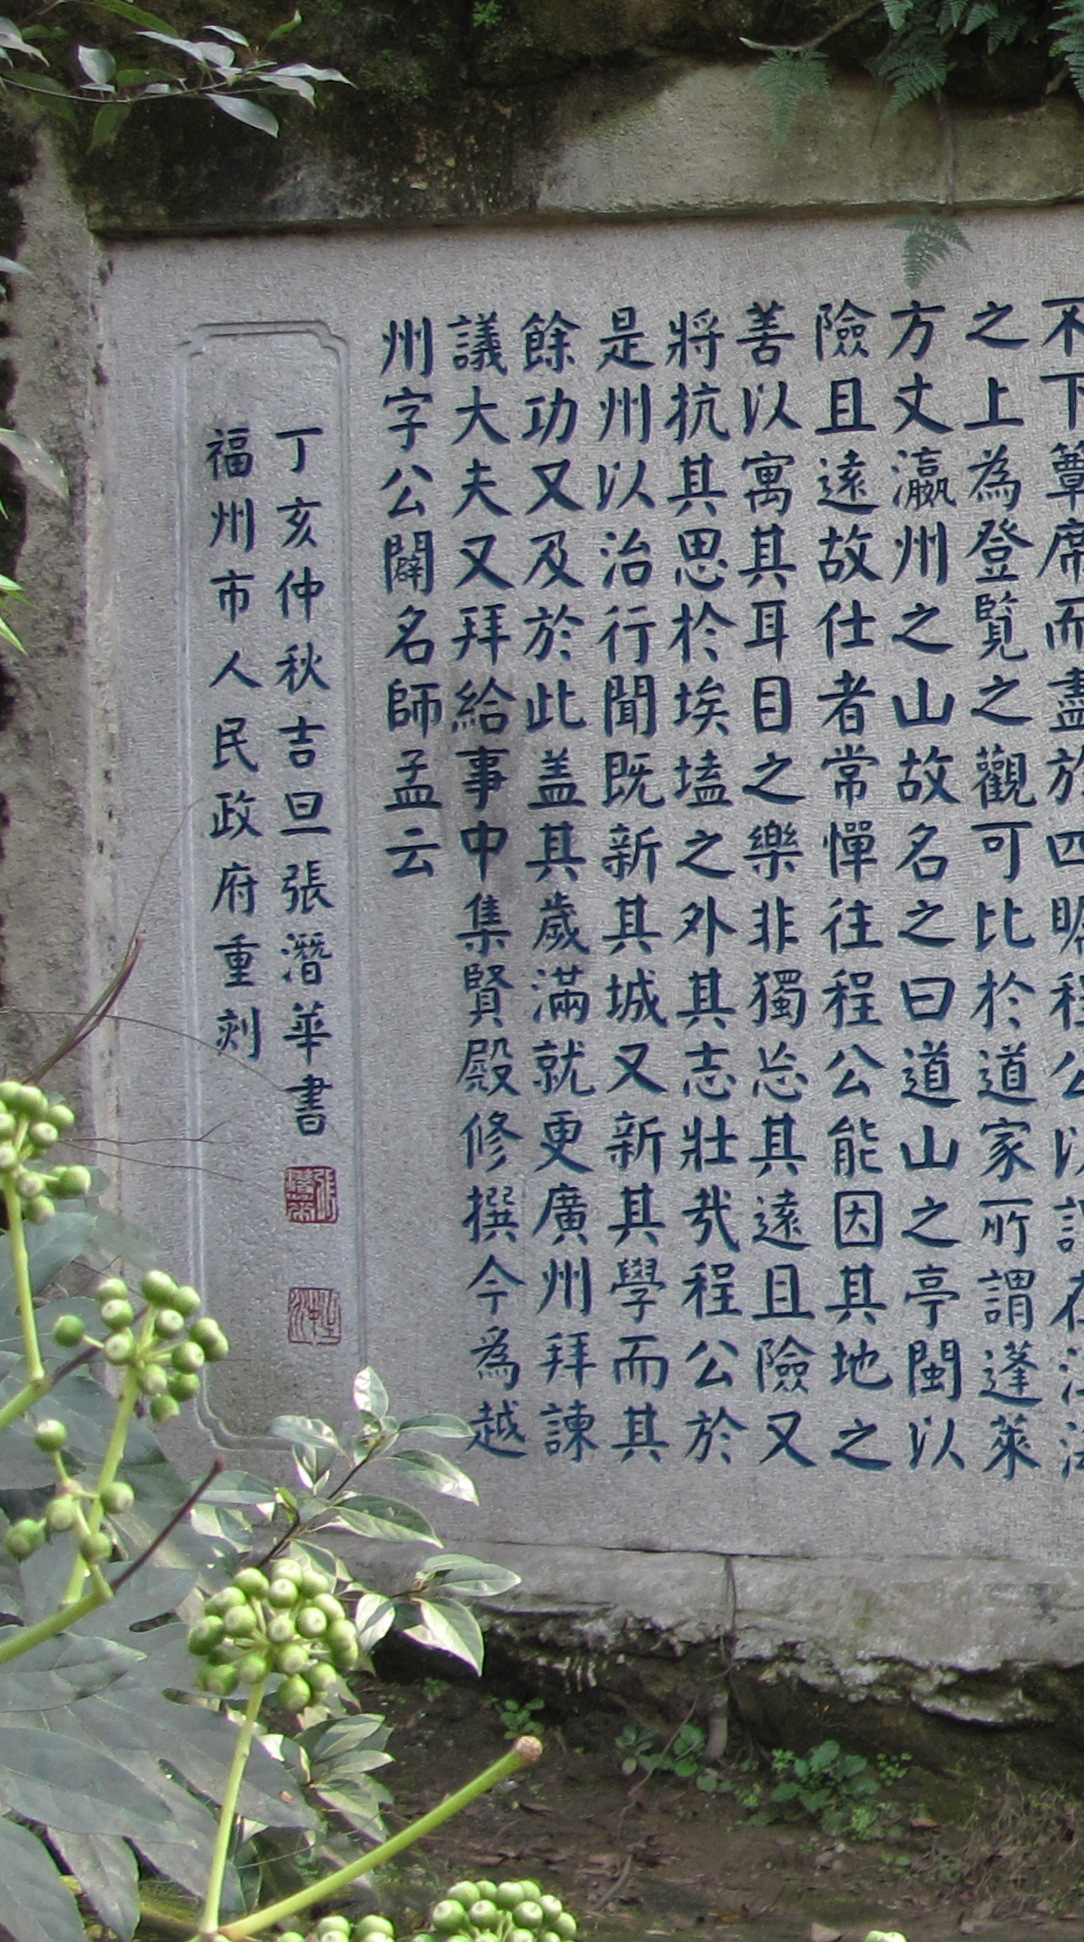 不下簟席而盡於四
之上為登覧之觀可比於道家所謂蓬萊
方丈瀛州之山故名之曰道山之亭閩以
險且遠故仕者常憚往程公能因其地之
善以寓其耳目之樂非獨忘其遠且險又
將抗其思於埃壒之外其志壯哉程公於
是州以治行聞既新其城又新其學而其
餘功又及於此盖其歲滿就更廣州拜諫
議大夫又拜給事中集賢殿修撰今為越
州字公闢名師孟云
丁亥仲秋吉旦張潛華書
福州市人民政府重刻